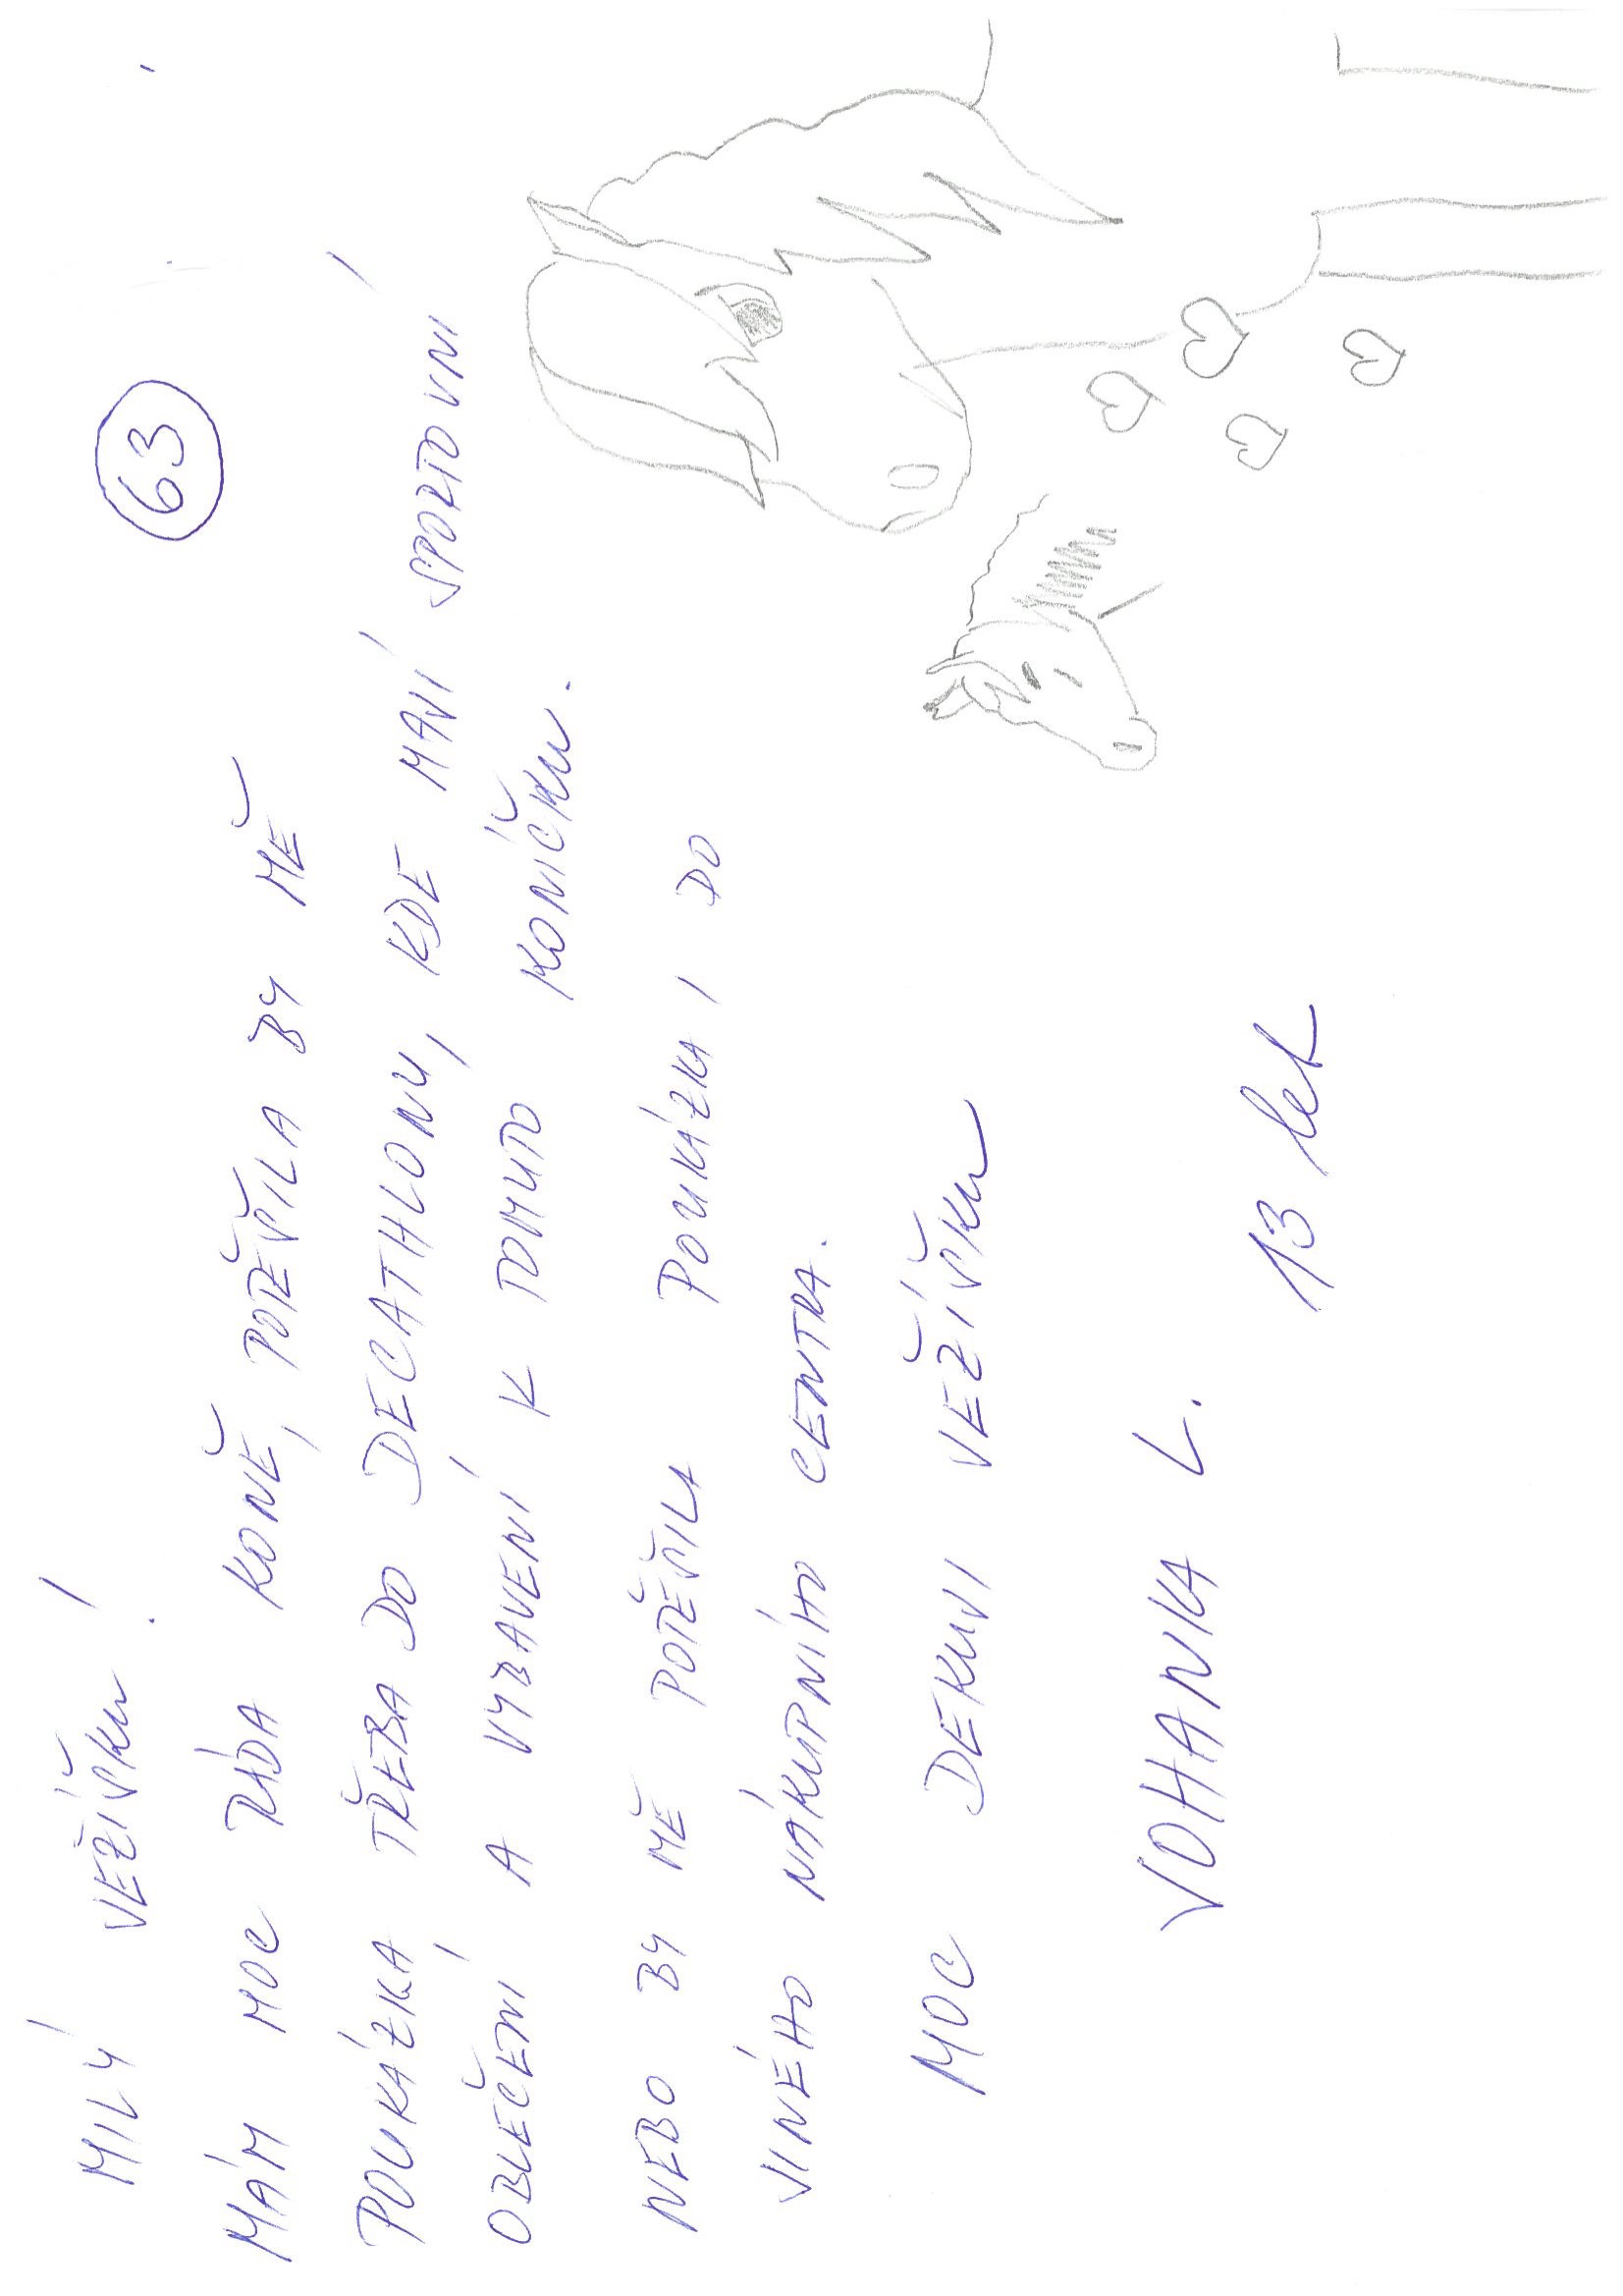 63
MILÝ JEŽÍŠKU!
MÁM MOC RÁDA KONĚ, POTĚŠILA BY MĚ
POUKÁZKA TŘEBA DO DECATHLONU, KDE MAJÍ SPORTOVNÍ
OBLEČENÍ A VYBAVENÍ K TOMUTO KONÍČKU.
NEBO BY MĚ POTĚŠILA POUKÁZKA I DO
JINÉHO NÁKUPNÍHO CENTRA.
MOC DEKUJI JEŽÍŠKU
JOHANKA L.
13 let